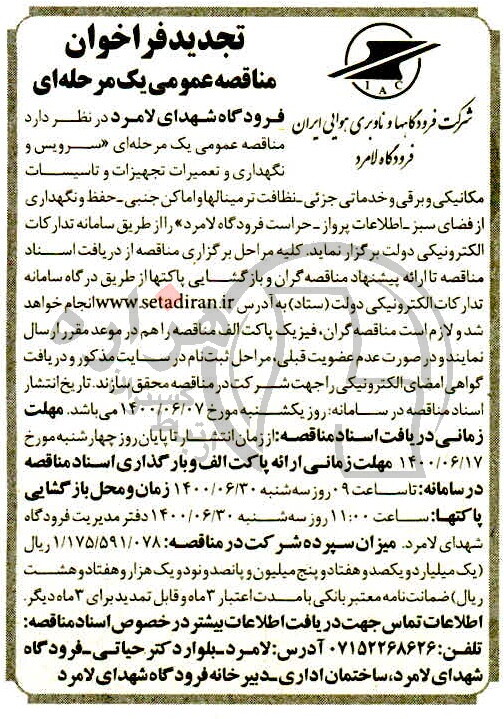 تجدید فراخوان
مناقصه عمومی یک مرحله‌ای
IAC
شرکت فرودگاهها و ناوبری هوایی ایران
فرودگاه لامرد
فرودگاه شهدای لامرد در نظر دارد
مناقصه عمومی یک مرحله‌ای «سرویس و
نگهداری و تعمیرات تجهیزات و تاسیسات
مکانیکی و برقی و خدماتی جزئی ـ نظافت ترمینالها و اماکن جنبی ـ حفظ و نگهداری
از فضای سبز ـ اطلاعات پرواز ـ حراست فرودگاه لامرد» را از طریق سامانه تدارکات
الکترونیکی دولت برگزار نماید. کلیه مراحل برگزاری مناقصه از دریافت اسناد
مناقصه تا ارائه پیشنهاد مناقصه گران و بازگشایی پاکتها از طریق درگاه سامانه
تدارکات الکترونیکی دولت (ستاد) به آدرس www.setadiran.ir انجام خواهد
شد و لازم است مناقصه گران، فیزیک پاکت الف مناقصه را هم در موعد مقرر ارسال
نمایند و در صورت عدم عضویت قبلی، مراحل ثبت نام در سایت مذکور و دریافت
گواهی امضای الکترونیکی را جهت شرکت در مناقصه محقق سازند. تاریخ انتشار
اسناد مناقصه در سامانه: روز یکشنبه مورخ ۱۴۰۰/۰۶/۰۷ می باشد. مهلت
زمانی دریافت اسناد مناقصه: از زمان انتشار تا پایان روز چهارشنبه مورخ
۱۴۰۰/۰۶/۱۷ مهلت زمانی ارائه پاکت الف و بارگذاری اسناد مناقصه
در سامانه: تا ساعت ۰۹ روز سه شنبه ۱۴۰۰/۰۶/۳۰ زمان و محل بازگشایی
پاکتها: ساعت ۱۱:۰۰ روز سه شنبه ۱۴۰۰/۰۶/۳۰ دفتر مدیریت فرودگاه
شهدای لامرد. میزان سپرده شرکت در مناقصه: ۱/۱۷۵/۵۹۱/۰۷۸ ریال
(یک میلیارد و یکصد و هفتاد و پنج میلیون و پانصد و نود و یک هزار و هفتاد و هشت
ریال) ضمانت نامه معتبر بانکی با مدت اعتبار ۳ ماه و قابل تمدید برای ۳ ماه دیگر.
اطلاعات تماس جهت دریافت اطلاعات بیشتر در خصوص اسناد مناقصه:
تلفن: ۰۷۱۵۲۲۶۸۶۲۶ آدرس: لامرد ـ بلوار دکتر حیاتی ـ فرودگاه
شهدای لامرد، ساختمان اداری ـ دبیرخانه فرودگاه شهدای لامرد